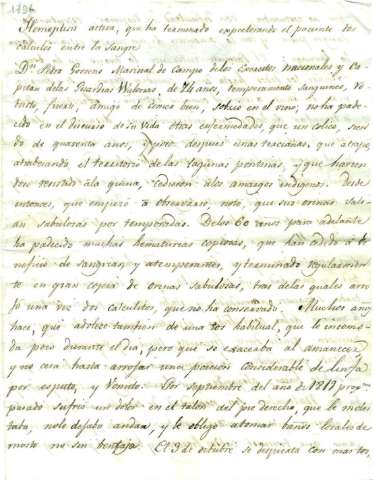 Hemoptisis activa, que ha terminado expectorando el paciente dos
calculos entre la sangre
Dn. Pedro Gomez Mariscal de Campo de los Exercitos nacionales y Ca-
pitan de las Guardias Walonas, de 74 años, temperamento sanguineo, ro-
busto, fuerte, amigo de comer bien, sobrio en el vino; no ha pade-
cido en el discurso de su vida otras enfermedades, que un colico, sien-
do de quarenta años, y poco despues unas tercianas, que atrapó
atrabesando el territorio de las lagunas pontinas, y que havien-
dose resistido à la quina, cedieron à los amargos indigenos. Desde
entonces, que empezó à observarse, notó, que sus orinas salí-
an sabulosas por temporadas. De los 60 años para adelante
ha padecido muchas hematurias copiosas, que han cedido à be-
neficio de sangrias y atemperantes, y terminado regularmen-
te en gran copia de orinas sabulosas, tras de las quales arro-
jó una vez dos calculitos, que no ha conservado. Muchos años
hace, que adolece tambien de una tos habitual, que le incomo-
da poco durante el dia, pero que se exacerba al amanecer,
y no cesa hasta arrojar una porcion considerable de linfa
por esputo, y vomito. Por septiembre del año de 1817
sufrió un dolor en el talon del pie derecho, que le moles-
taba, no le dejaba andar, y le obligó a tomar baños locales de
mosto no sin ventaja. El 3 de octubre se despierta con mas tos,